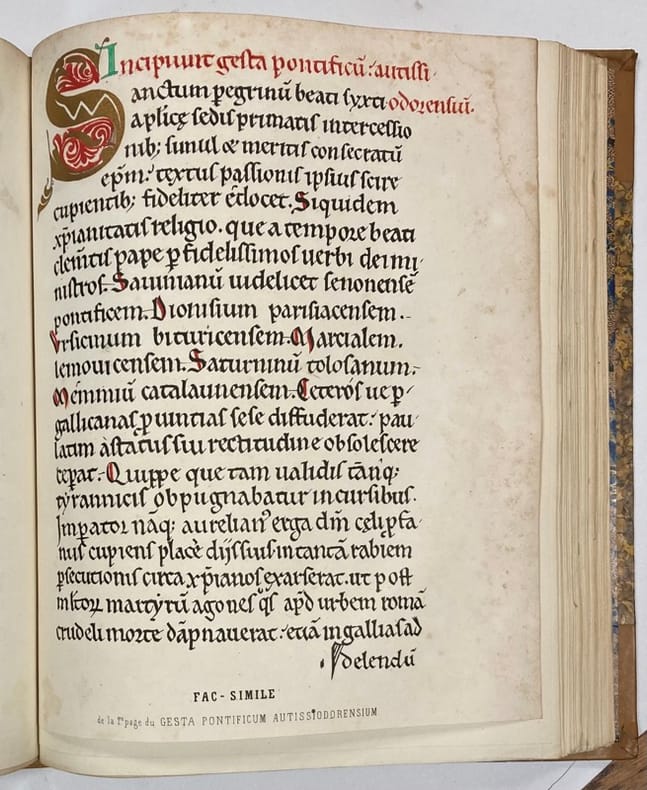 Incipiunt gesta pontificū. autissi
odorensiū.
Sanctum peregrinū beati syxti
aplicę sedis primatis intercessio
nib; simul & meritis consecratū
epm̄. textus passionis ipsius scire
cupientib; fideliter edocet. Siquidem
xp̄ianitatis religio. que a tempore beati
clem̄tis pape p fidelissimos verbi dei mi
nistros. Sauinianū uidelicet senonensē
pontificem. Dionisium parisiacensem.
Vrsicinum bituricensem. Marcialem.
lemouicensem. Saturninū tolosanum.
Memmiū catalaunensem. Ceteros ue p
gallicanas puintias sese diffuderat. pau
latim a status sui rectitudine obsolescere
ceperat. Quippe que tam ualidis tāq;
tyrannicis obpugnabatur incursibus.
Imperator nāq; aurelian' erga dm̄ celi pfa
nus cupiens placere diis suis. in tantā rabiem
psecutionis circa xp̄ianos exarserat. ut post
martyrū agones qs apd urbem romā
crudeli morte dāpnauerat. etiā in gallias ad
delendū
FAC-SIMILE
de la 1re page du GESTA PONTIFICUM AUTISSIODORENSIUM